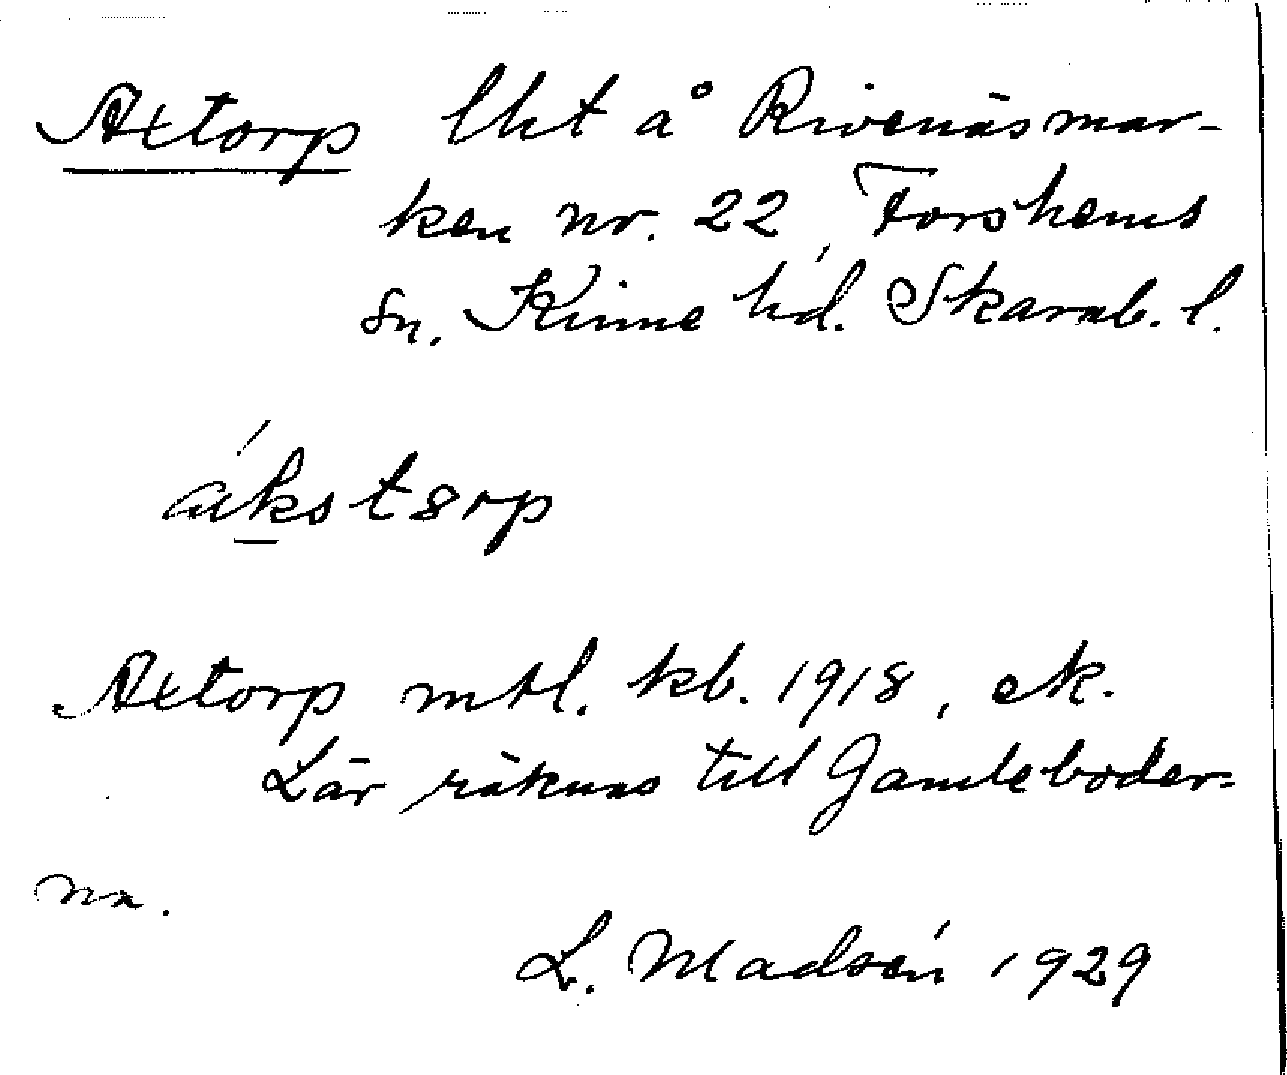 Axtorp lht å Rivenäsmar-
ken nr. 22, Forshems
sn. Kinne hd. Skarab. l.
ákstorp
Axtorp mtl. kb. 1918, ek.
Lär räknas till Gamleboder-
na.
L. Madsén 1929